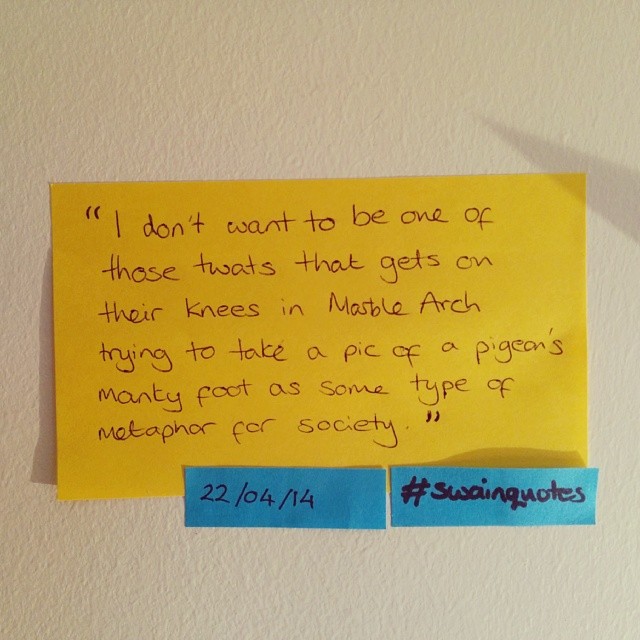 “I don't want to be one of
those twats that gets on
their knees in Marble Arch
trying to take a pic of a pigeon's
manky foot as some type of
metaphor for society.”
22/04/14
#swainquotes